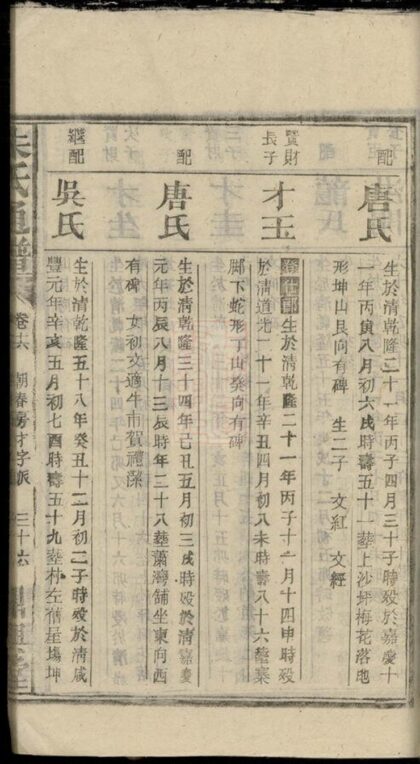 配
唐氏
生於清乾隆二十一年丙子四月三十子時殁於嘉慶十
一年丙寅八月初六戌時壽五十一塟上沙坪梅花落地
形坤山艮向有碑　生二子　文紅　文經
賢財
長子
才玉
登仕郎生於清乾隆二十一年丙子十一月十四申時殁
於清道光二十一年辛丑四月初八未時壽八十六塟寨
脚下蛇形丁山癸向有碑
配
唐氏
生於清乾隆三十四年己丑五月初三戌時殁於清嘉慶
元年丙辰八月十三辰時年二十八塟蕭灣舖坐東向西
有碑　女初交適牛市賀禮藻
繼配
吳氏
生於清乾隆五十八年癸丑十二月初二子時殁於清咸
豐元年辛亥五月初七酉時壽五十九塟朴左禧屋塲坤
朱氏通譜
卷六　朝春房才字派　三十六